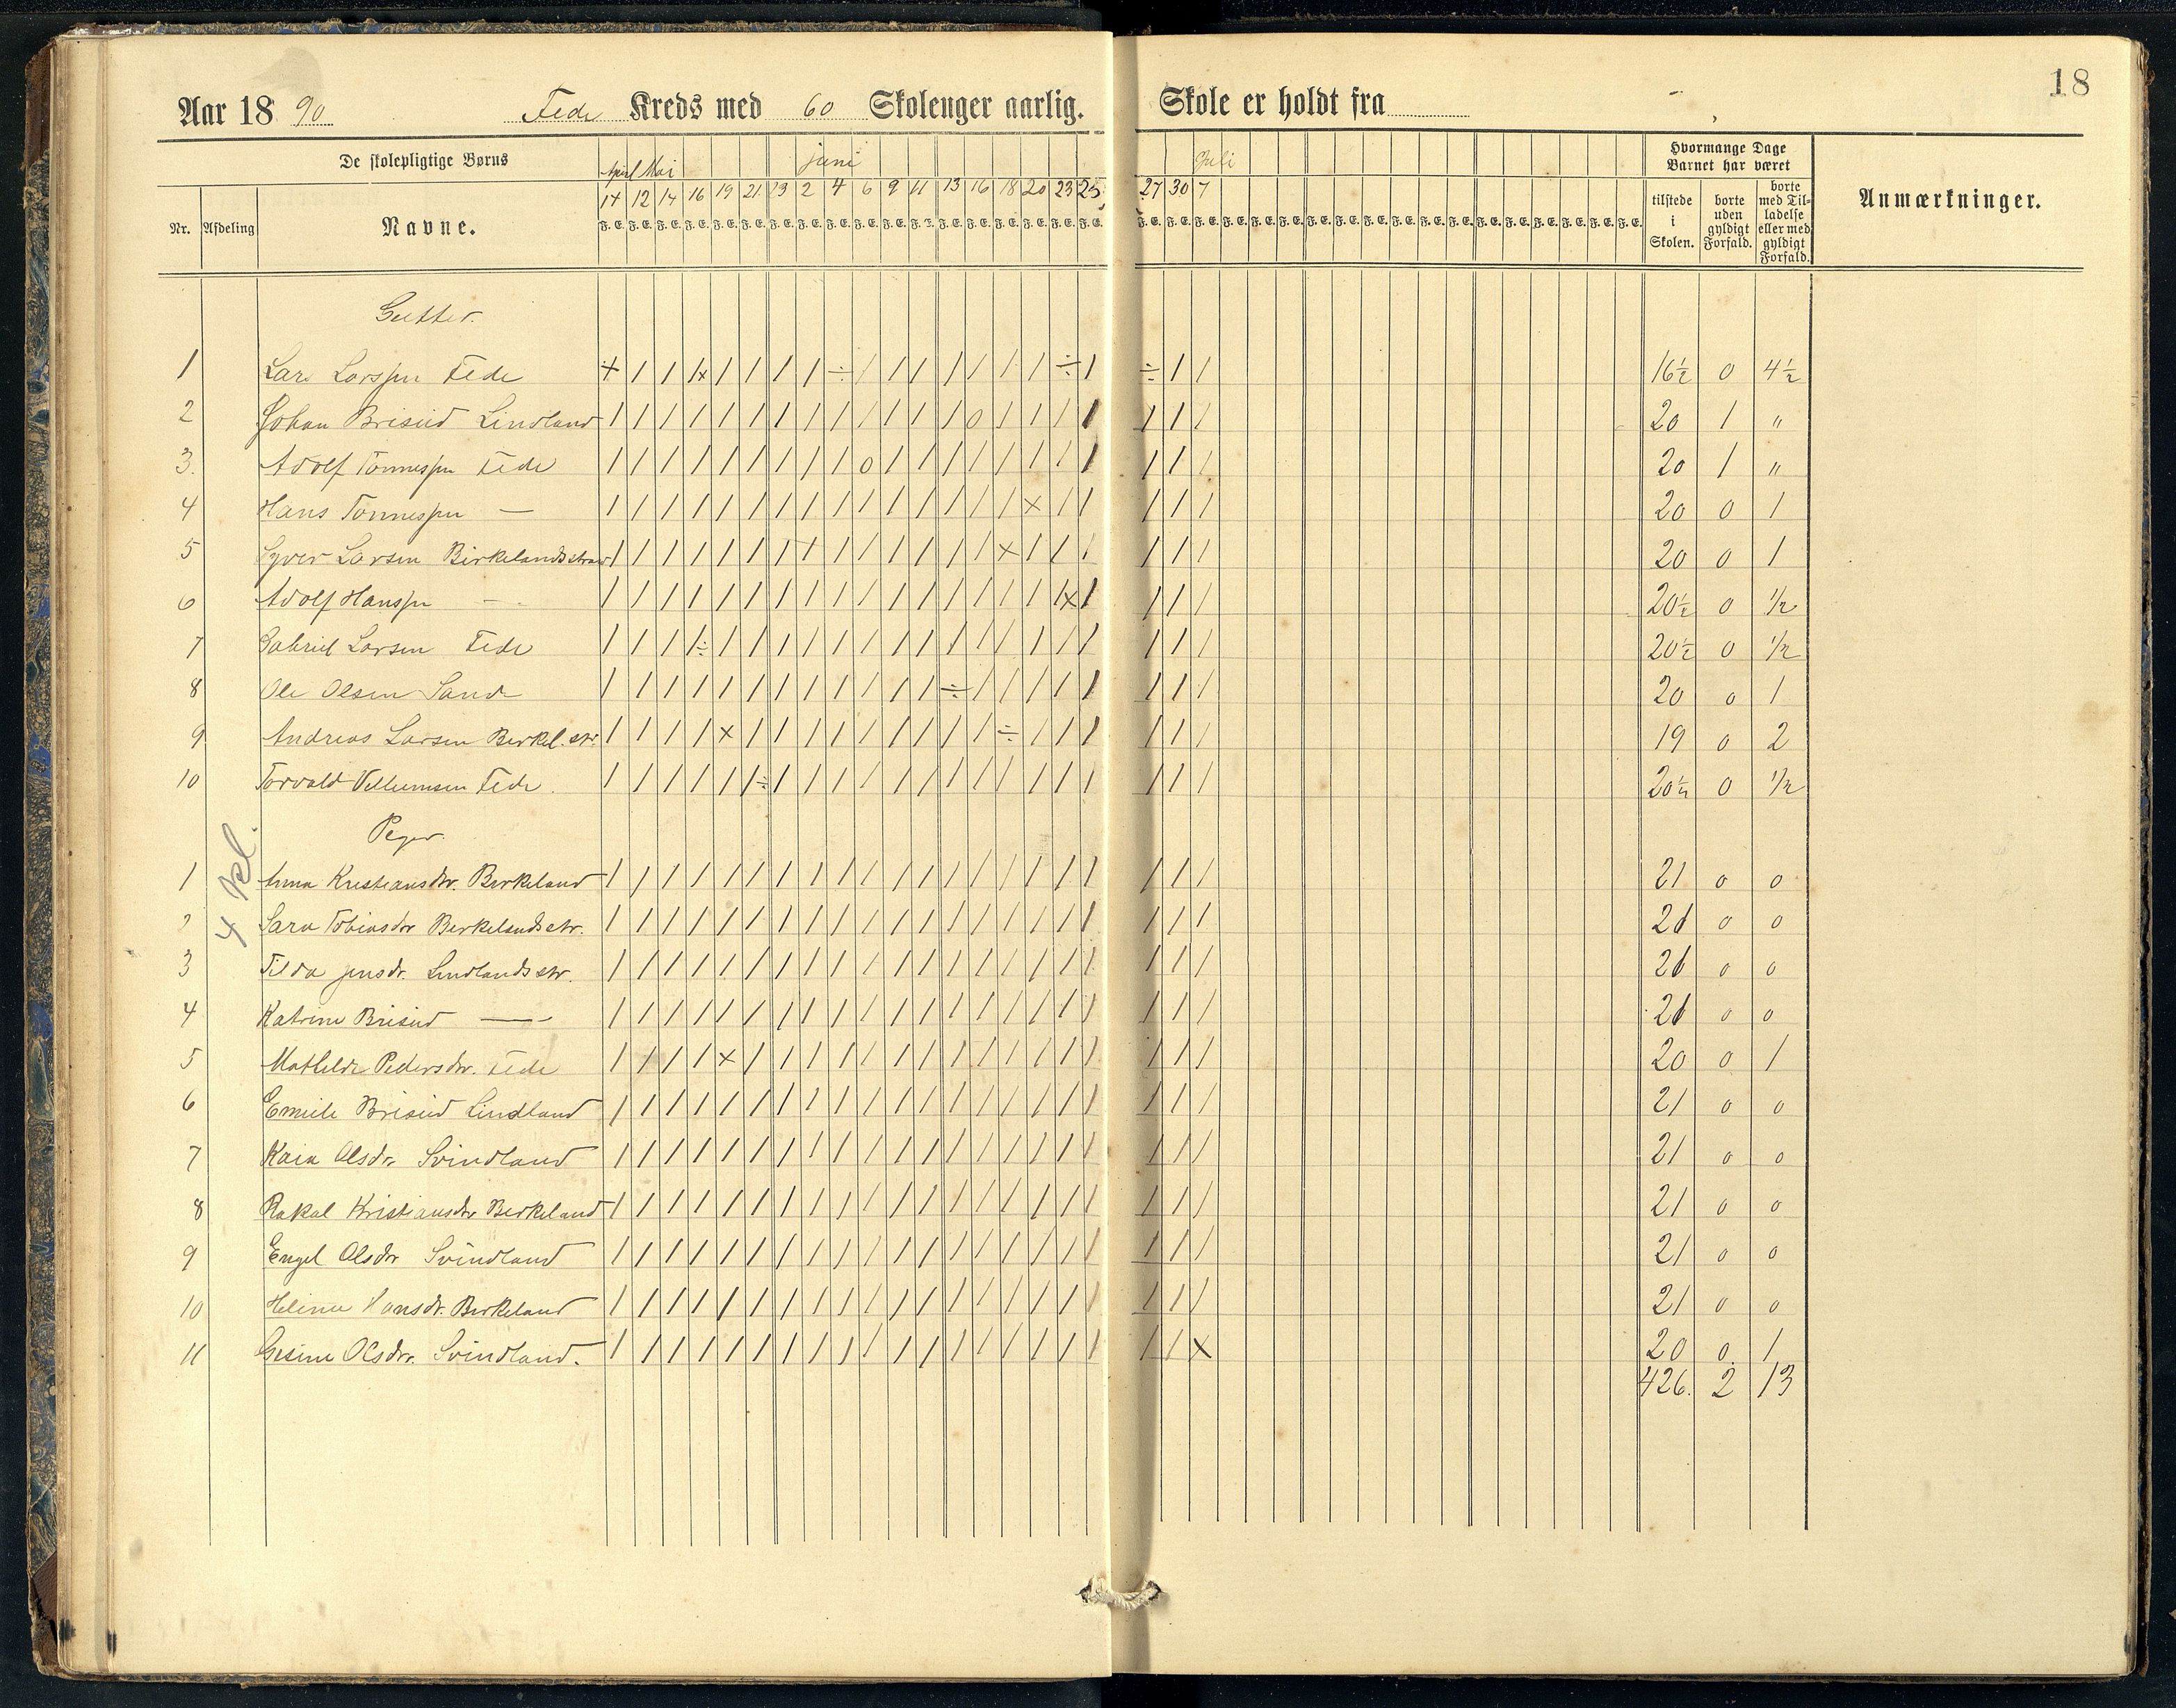 18
Aar 18 90 Fede Kreds med 60 Skoleuger aarlig. Skole er holdt fra
De skolepligtige Børns
April Mai juni Juli
Hvormange Dage Barnet har været
Nr. Afdeling Navne.
14 12 14 16 19 21 23 2 4 6 9 11 13 16 18 20 23 25 27 30 7
F. E. F. E. F. E. F. E. F. E. F. E. F. E. F. E. F. E. F. E. F. E. F. E. F. E. F. E. F. E. F. E. F. E. F. E. F. E. F. E. F. E. F. E. F. E. F. E. F. E. F. E. F. E. F. E. F. E. F. E. F. E. F. E. F. E. F. E. F. E. F. E.
tilstede i Skolen. borte uden gyldigt Forfald. borte med Tilladelse eller med gyldigt Forfald.
Anmærkninger.
Gutter.
1 Lars Larssen Fede + / / /x / / / / ÷ / / / / / / / ÷ / ÷ / / 16½ 0 4½
2 Johan Briseid Lindland / / / / / / / / / / / / / 0 / / / / / / / 20 1 "
3. Adolf Tønnessen Fede / / / / / / / / / 0 / / / / / / / / / / / 20 1 "
4 Hans Tønnessen — / / / / / / / / / / / / / / / x / / / / / 20 0 1
5 Syver Larsen Birkelandsstrand / / / / / / / / / / / / / / x / / / / / / 20 0 1
6 Adolf Hanssen — / / / / / / / / / / / / / / / / /x / / / / 20½ 0 ½
7 Gabriel Larsen Fede / / / /÷ / / / / / / / / / / / / / / / / / 20½ 0 ½
8 Ole Olsen Sande / / / / / / / / / / / / ÷ / / / / / / / / 20 0 1
9 Andreas Larsen Birkel.str. / / / / x / / / / / / / / / ÷ / / / / / / 19 0 2
10 Torvald Villumsen Fede. / / / / / /÷ / / / / / / / / / / / / / / / 20½ 0 ½
Peger.
4 Kl.
1 Anna Kristiansdtr. Birkeland / / / / / / / / / / / / / / / / / / / / / 21 0 0
2 Sara Tobiasdtr Birkelandsstr. / / / / / / / / / / / / / / / / / / / / / 21 0 0
3 Tilda Jensdr. Lindlandsstr. / / / / / / / / / / / / / / / / / / / / / 21 0 0
4 Katrine Briseid — / / / / / / / / / / / / / / / / / / / / / 21 0 0
5 Mathilde Pedersdtr. Fede / / / / x / / / / / / / / / / / / / / / / 20 0 1
6 Emilie Briseid Lindland / / / / / / / / / / / / / / / / / / / / / 21 0 0
7 Kaia Olsdr. Svindland / / / / / / / / / / / / / / / / / / / / / 21 0 0
8 Rakal Kristiansdtr Birkeland / / / / / / / / / / / / / / / / / / / / / 21 0 0
9 Engel Olsdtr Svindland / / / / / / / / / / / / / / / / / / / / / 21 0 0
10 Heline Hansdr. Birkeland / / / / / / / / / / / / / / / / / / / / / 21 0 0
11 Gesine Olsdtr. Svindland. / / / / / / / / / / / / / / / / / / / / x 20 0 1
426. 2 13